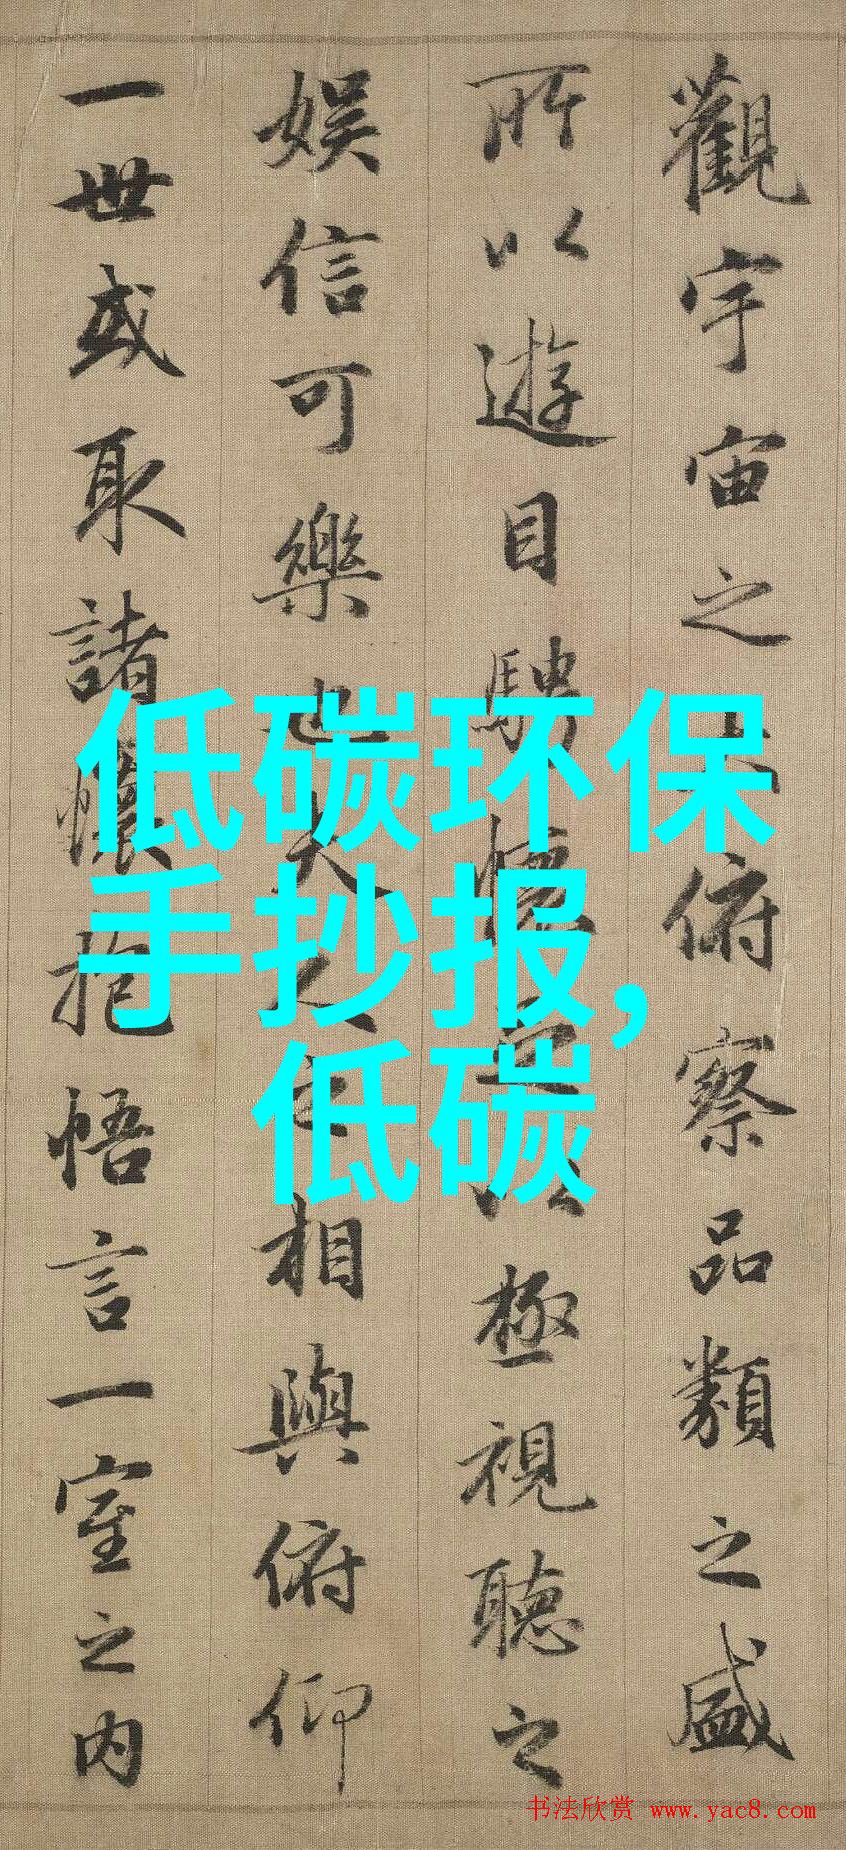 觀宇宙之大俯察品類之盛
所以遊目騁懷足以極視聽之
娛信可樂也夫人之相與俯仰
一世或取諸懷抱悟言一室之内
低碳环保
手抄报，
低碳
书法欣赏 www.yac8.com